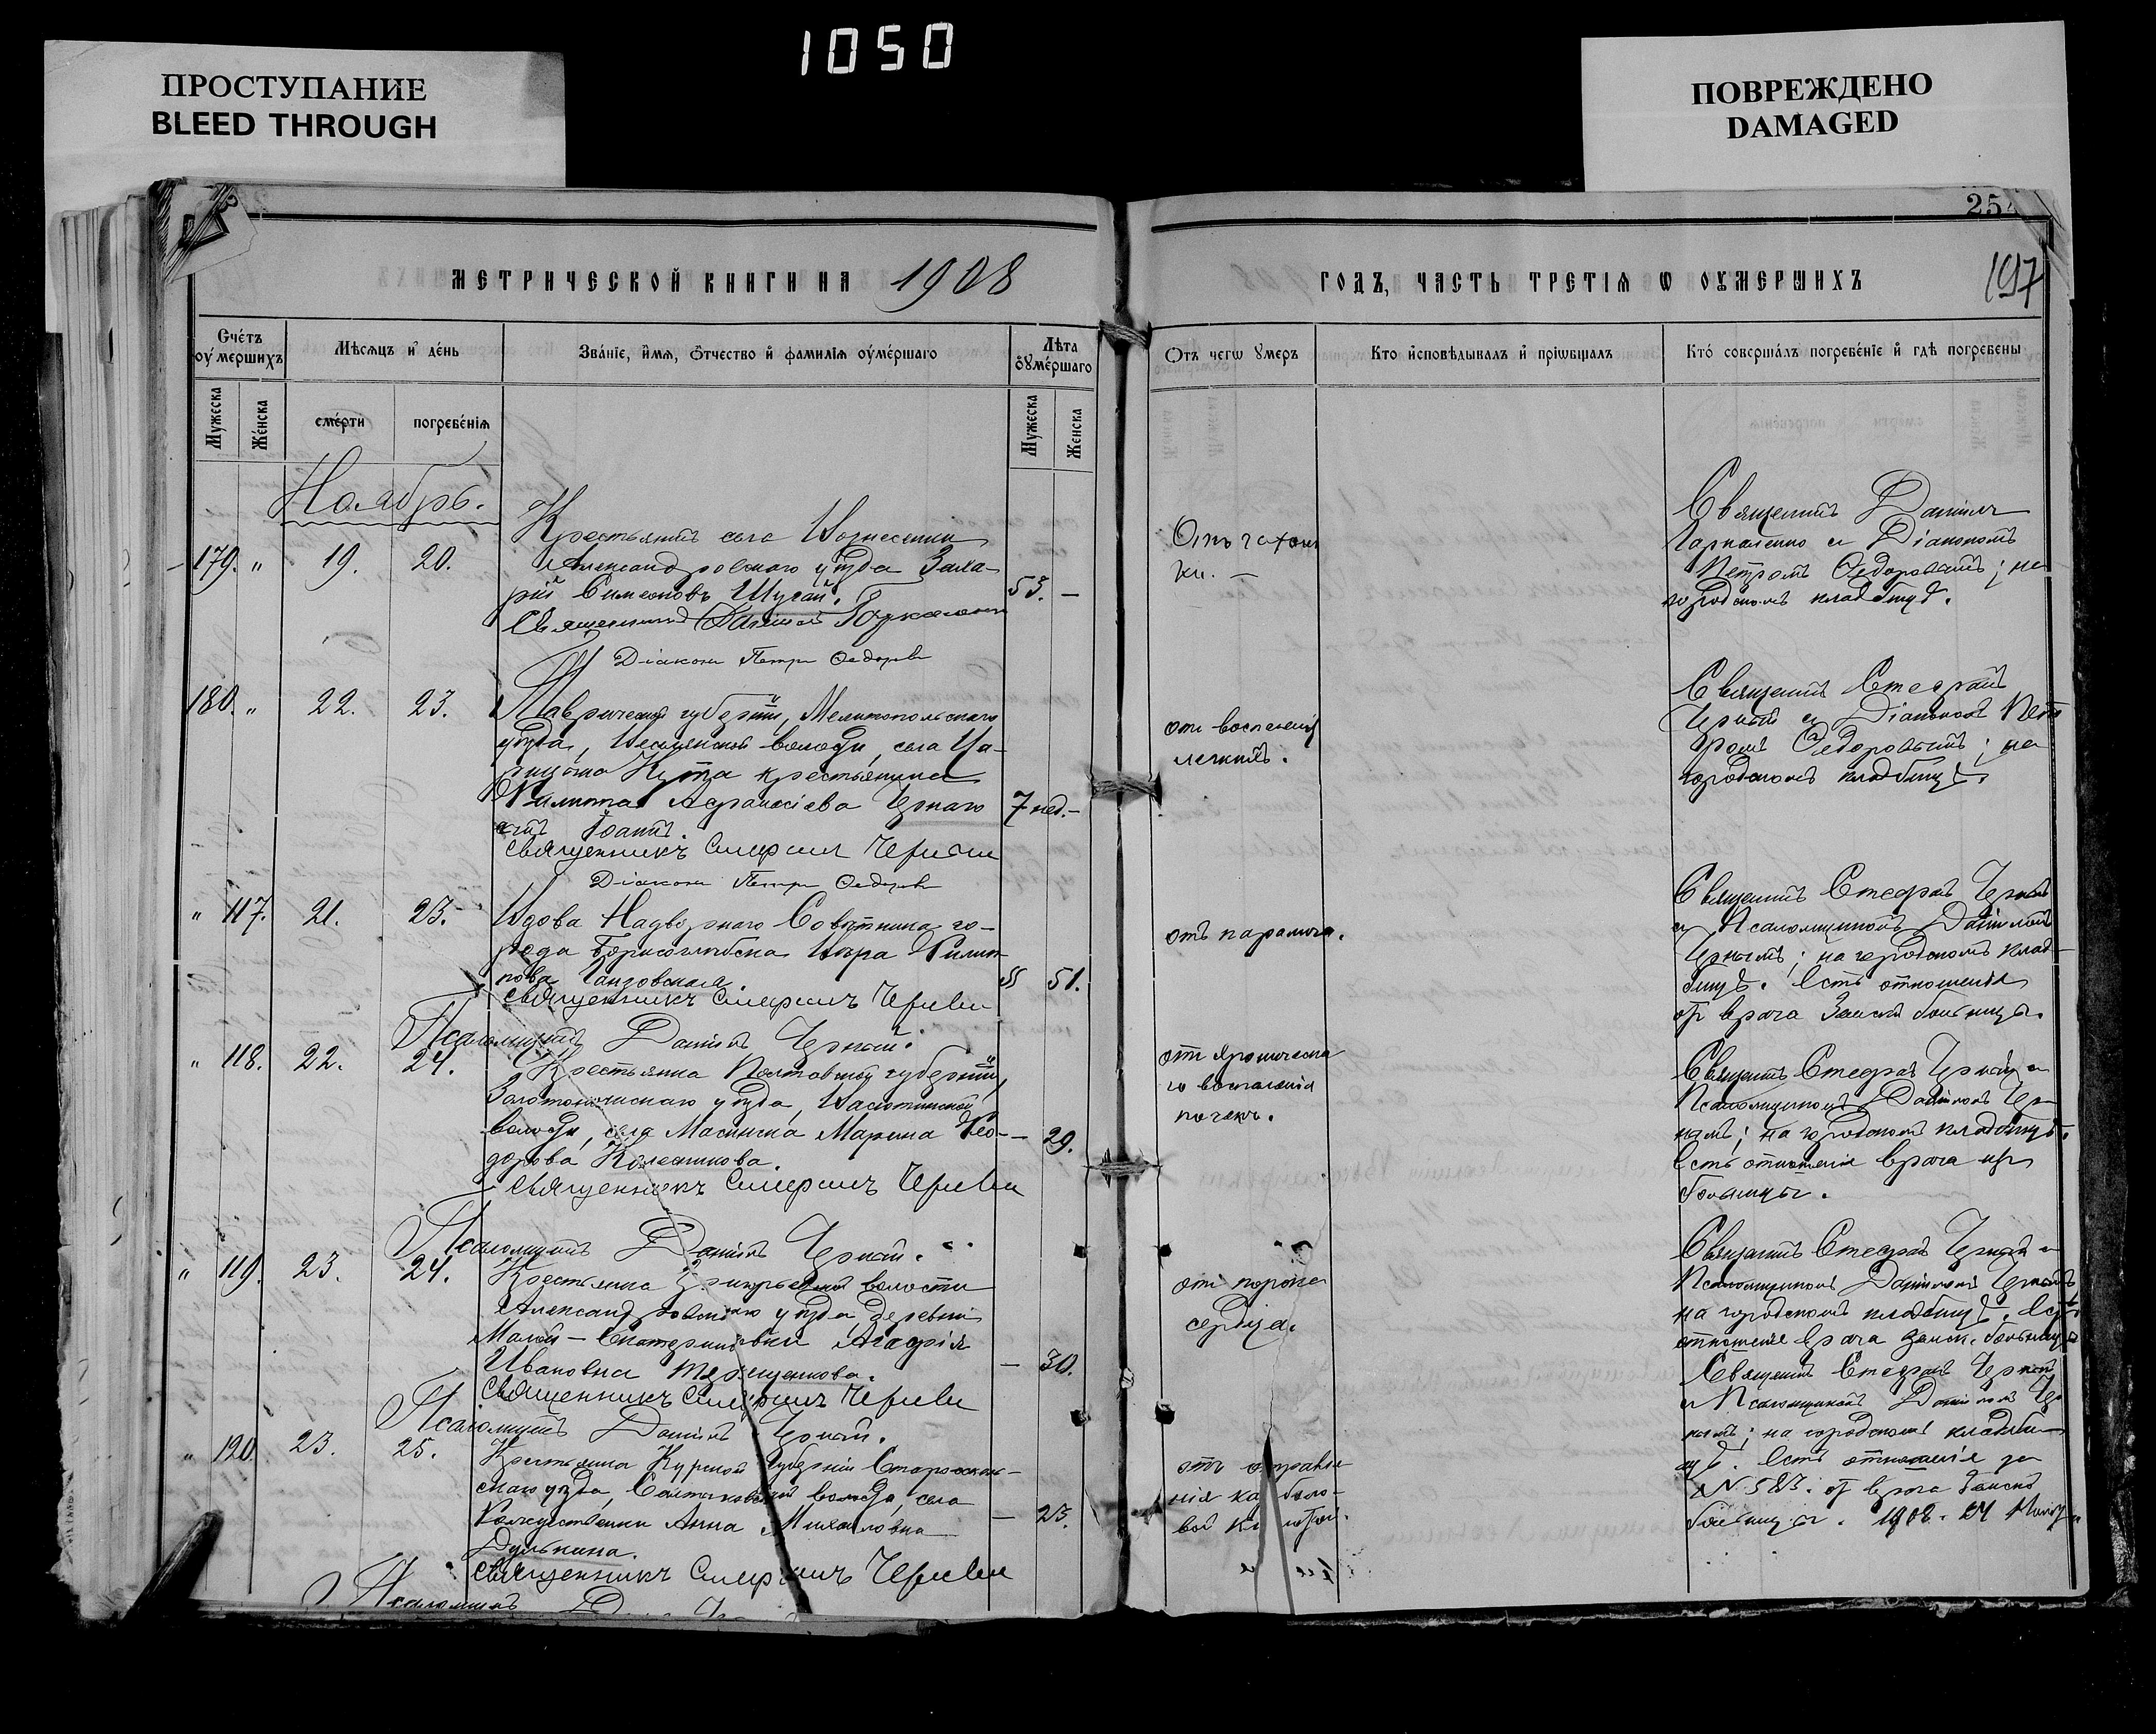 1050
ПРОСТУПАНИЕ
BLEED THROUGH
ПОВРЕЖДЕНО
DAMAGED
254
197
МЕТРИЧЕСКОЙ КНИГИ НА 1908
ГОДЪ, ЧАСТЬ ТРЕТІѦ Ѡ ОУМЕРШИХЪ
Счетъ оумершихъ
Мужеска
Женска
Мѣсяцъ и день
смерти
погребенія
Званіе, имя, Отчество и фамилія оумершаго
Лѣта оумершаго
Мужеска
Женска
Отъ чегѡ умеръ
Кто исповѣдывалъ и пріѡбщалъ
Кто совершалъ погребеніе и гдѣ погребены
Ноябрь.
179. " 19. 20.
Крестьянинъ села Вознесенки
Александровскаго уѣзда Заха-
рій Симеоновъ Шугай.
53. —
Священникъ Даніилъ
Діаконъ Петръ Ѳедоровъ
Отъ чахот
ки. —
Священникъ Даніилъ
и Діакономъ
Петромъ Ѳедоровымъ; на
городскомъ кладбищѣ.
180. " 22. 23.
Таврической губерніи, Мелитопольскаго
уѣзда, волости, села Ца-
рицына Кута крестьянина
Филиппа Аѳанасіева Чернаго
сынъ Іоаннъ.
7 нед. —
Священникъ Стефанъ Черный
Діаконъ Петръ Ѳедоровъ
отъ воспаленія
легкихъ.
Священникъ Стефанъ
Черный и Діаконъ Пет
ромъ Ѳедоровымъ; на
городскомъ кладбищѣ.
" 117. 21. 23.
Вдова Надворнаго Совѣтника го-
рода Борисоглѣбска Вѣра Филип-
пова
51.
Священникъ Стефанъ Черный
Псаломщикъ Даніилъ Черный.
отъ паралича.
Священникъ Стефанъ Черный
и Псаломщикомъ Даніиломъ
Чернымъ; на городскомъ клад-
бищѣ. Есть отношеніе
от врача Земской больницы.
" 118. 22. 24.
Крестьянка Полтавской губерніи,
Золотоношскаго уѣзда,
волости, села Марина Ѳео-
дорова Колесникова.
— 29.
Священникъ Стефанъ Черный
Псаломщикъ Даніилъ Черный.
отъ хроническа
го воспаленія
почекъ.
Священникъ Стефанъ Черный и
Псаломщикомъ Даніиломъ Чер
нымъ; на городскомъ кладбищѣ.
Есть отношеніе врача
больницы.
" 119. 23. 24.
Крестьянка волости
Александровскаго уѣзда, деревни
Малой-Екатериновки Агафія
Ивановна Терещенкова.
— 30.
Священникъ Стефанъ Черный
Псаломщикъ Даніилъ Черный.
отъ порока
сердца.
Священникъ Стефанъ Черный и
Псаломщикомъ Даніиломъ Чернымъ
на городскомъ кладбищѣ. Есть
отношеніе врача земск. больницы
" 120. 23. 25.
Крестьянка Курской Губерніи Старооскол-
скаго уѣзда, волости, села
Рождественки Анна Михаиловна
Дулькина.
— 23.
Священникъ Стефанъ Черный
Псаломщикъ
отъ отравле
нія карболо-
вой кислотой.
Священникъ Стефанъ Черный
и Псаломщикомъ Даніиломъ Чер
нымъ; на городскомъ кладби-
щѣ. Есть отношеніе за
№ 583. от врача Земской
больницы. 1908. 24 Ноября